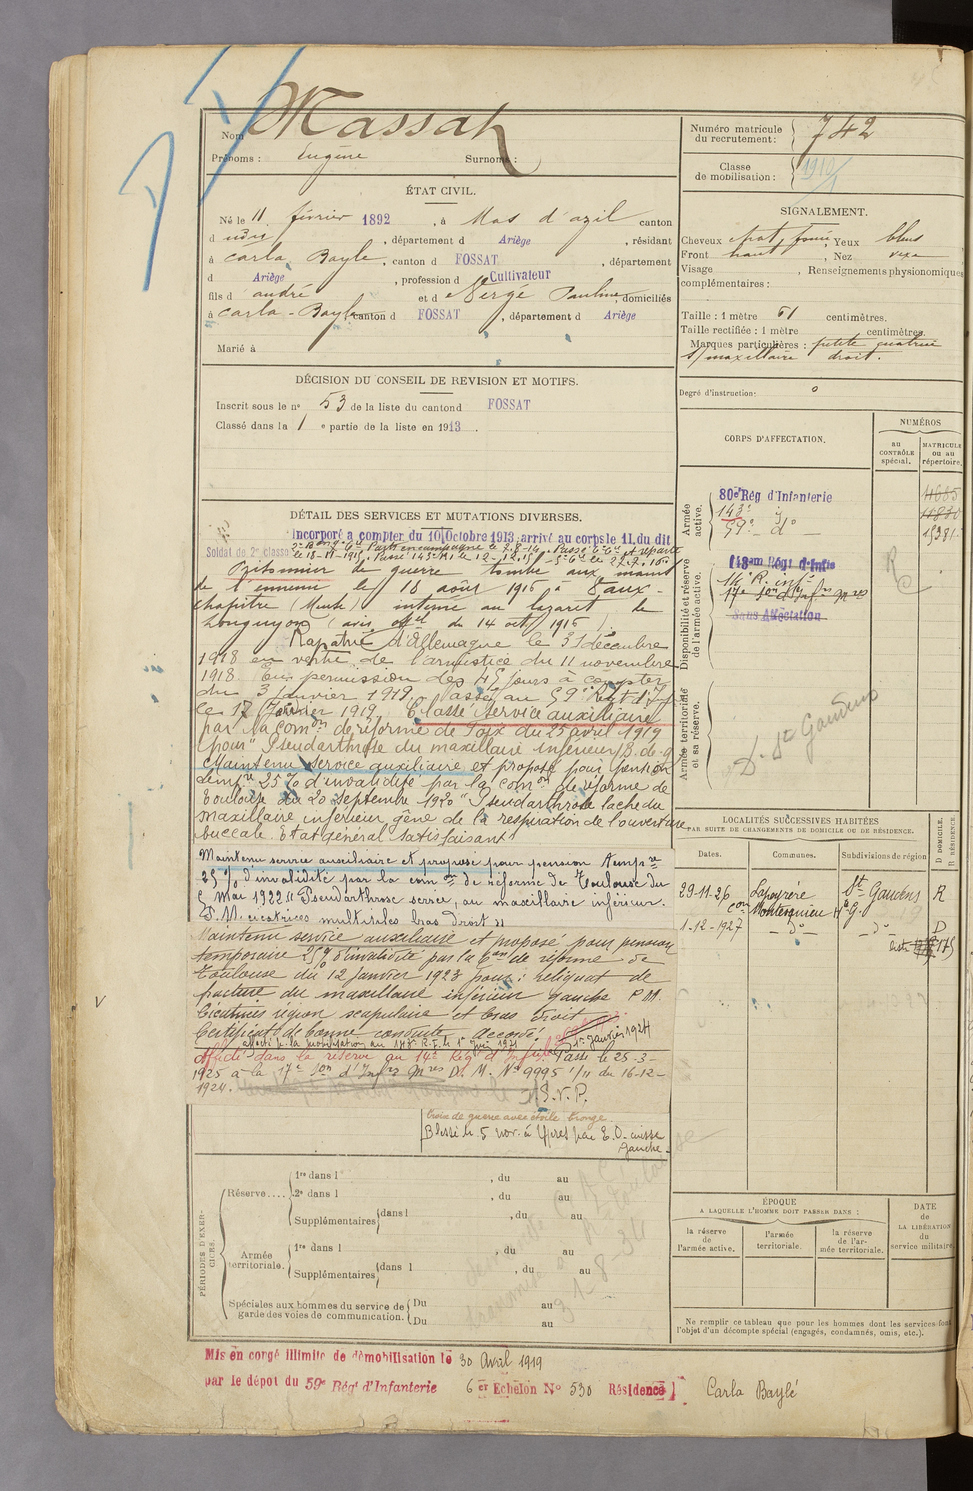 Nom Massat
Prénoms : Eugène Surnoms :
ÉTAT CIVIL.
Né le 11 février 1892, à Mas d'azil canton
d udit, département d Ariège, résidant
à Carla Bayle, canton d FOSSAT, département
d Ariège, profession d Cultivateur
fils d'andré et de Vergé Pauline, domiciliés
à Carla-Bayle, canton d FOSSAT, département d Ariège
Marié à
DÉCISION DU CONSEIL DE REVISION ET MOTIFS.
Inscrit sous le n° 53 de la liste du canton d FOSSAT
Classé dans la 1 e partie de la liste en 1913.
DÉTAIL DES SERVICES ET MUTATIONS DIVERSES.
Incorporé a compter du 10 Octobre 1913, arrivé au corps le 11, du dit
Soldat de 2e classe
Prisonnier de guerre tombé aux mains
de l'ennemi le 18 août 1916 à Vaux-
chapitre (Meuse) interné au lazaret de
Longuyon (avis offel du 14 octe 1916).
Rapatrié d'Allemagne le 31 décembre
1918 en vertu de l'armistice du 11 novembre
1918. En permission de 45 jours à compter
du 3 janvier 1919, passé au 59e Régt d'If
le 17 février 1919. Classé Service auxiliaire
par la comon de réforme de Foix du 25 avril 1919
pour "Pseudarthrose du maxillaire inférieur, B. de g.
Maintenu service auxiliaire et proposé pour pension
tempre 25% d'invalidité par la comon de réforme de
Toulouse du 20 septembre 1920 "Pseudarthrose lache du
maxillaire inférieur gêne de la respiration de l'ouverture
buccale. Etat général satisfaisant
Maintenu service auxiliaire et proposé pour pension tempre
25% d'invalidité par la comon de réforme de Toulouse du
5 Mai 1922 "Pseudarthrose serrée, au maxillaire inférieur.
P.M. cicatrices multiples bras droit"
Maintenu service auxiliaire et proposé pour pension
temporaire 25% d'invalidité par la Con de réforme de
Toulouse du 12 Janvier 1923 pour : reliquat de
fracture du maxillaire inférieur gauche P.M.
Cicatrices région scapulaire et bras droit
Certificat de bonne conduite Accordé.
1er janvier 1924
Affecté dans la réserve au 14e Régt d'Infie Passé le 25-3-
1925 à la 17e Son d'Infrs Mres D. M. N° 9995 1/11 du 16-12-
1924.
S.V.P.
Croix de guerre avec étoile bronze
Blessé le 5 nov. à Ypres par E.O. cuisse
gauche.
PÉRIODES D'EXERCICES.
Réserve.... 1re dans l , du au
2e dans l , du au
Supplémentaires dans l , du au
Armée territoriale. 1re dans l , du au
Supplémentaires dans l , du au
Spéciales aux hommes du service de garde des voies de communication. Du au
Du au
Mis en congé illimité de démobilisation le 30 Avril 1919
par le dépot du 59e Régt d'Infanterie 6 er Echelon N° 530 Résidence Carla Baylé
Numéro matricule du recrutement : 742
Classe de mobilisation : 1910
SIGNALEMENT.
Cheveux chat. foncé, Yeux bleus
Front haut, Nez vexe
Visage , Renseignements physionomiques
complémentaires :
Taille : 1 mètre 61 centimètres.
Taille rectifiée : 1 mètre centimètres.
Marques particulières : petite cicatrice
s/maxillaire droit.
Degré d'instruction : 0
CORPS D'AFFECTATION.
NUMÉROS
au CONTRÔLE spécial.
MATRICULE ou au répertoire.
Armée active.
80e Rég d'Infanterie
143e d°
59e d°
15381
Disponibilité et réserve de l'armée active.
14e R. infie
17e Son d'Infrs Mres
Sans Affectation
Armée territoriale et sa réserve.
D. St Gaudens
LOCALITÉS SUCCESSIVES HABITÉES
PAR SUITE DE CHANGEMENTS DE DOMICILE OU DE RÉSIDENCE.
Dates. Communes. Subdivisions de région D DOMICILE. R RÉSIDENCE.
29-11-26 Lapeyrère St Gaudens R
con Montesquieu Hte G.
1-12-1927 - d° - - d° - D
ÉPOQUE
A LAQUELLE L'HOMME DOIT PASSER DANS :
la réserve de l'armée active.
l'armée territoriale.
la réserve de l'armée territoriale.
DATE de LA LIBÉRATION du service militaire.
Ne remplir ce tableau que pour les hommes dont les services font
l'objet d'un décompte spécial (engagés, condamnés, omis, etc.).